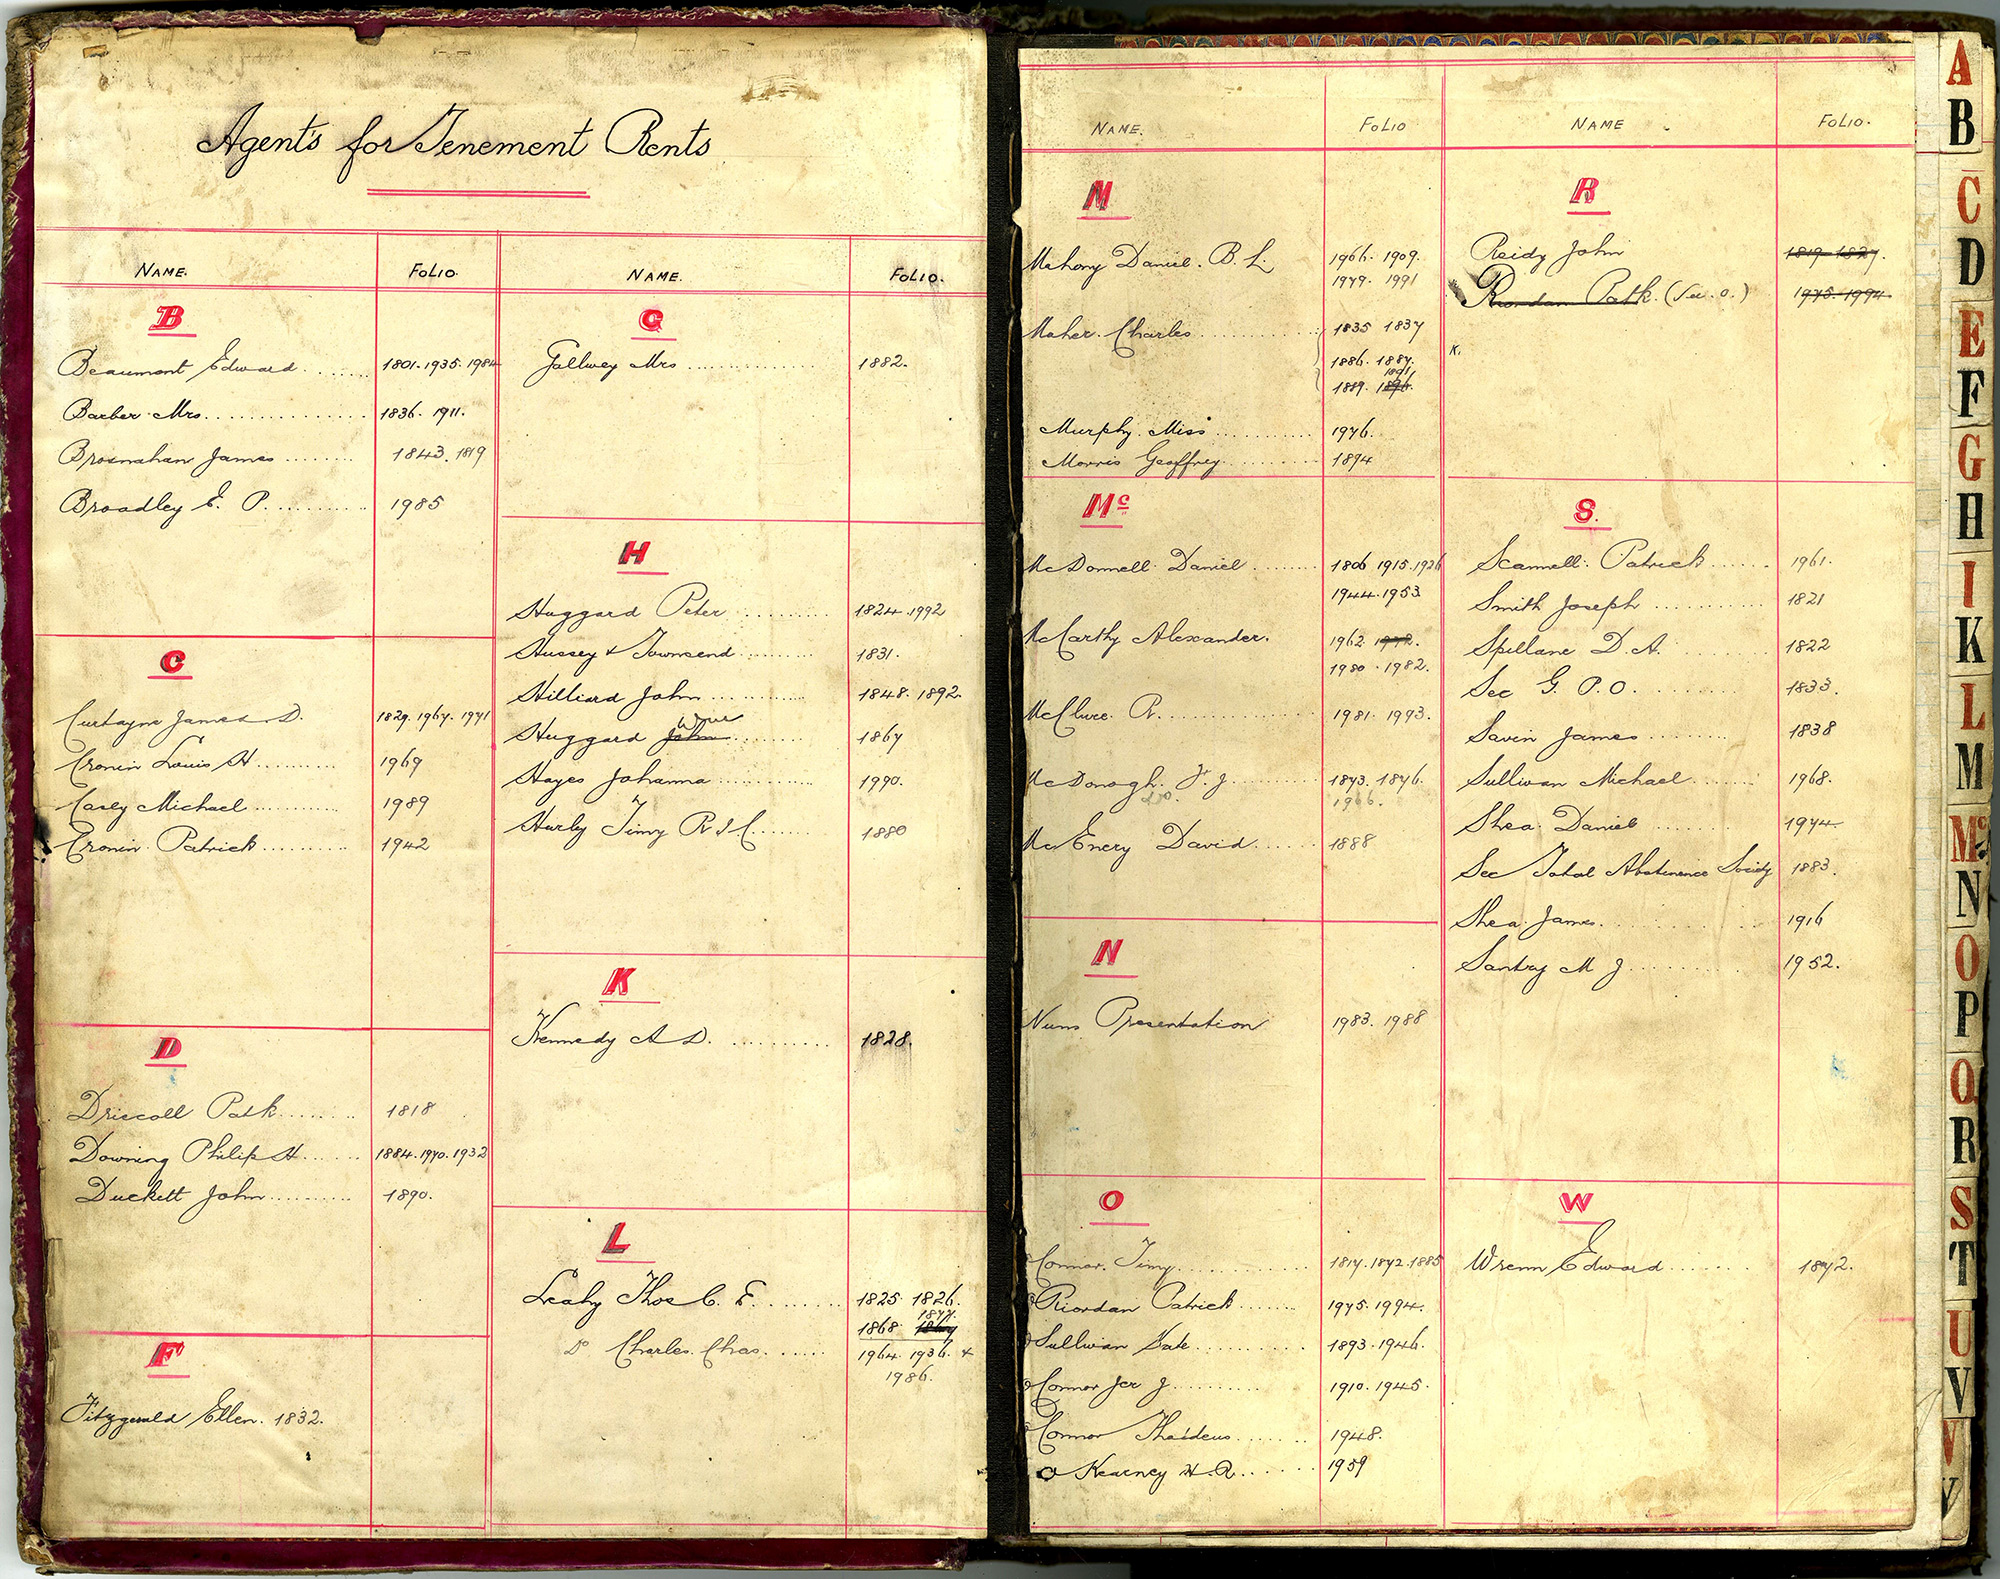 Agent's for Tenement Rents
NAME. FOLIO.
B
Beaumont Edward 1801. 1935. 1984
Barber Mrs 1836. 1911.
Brosnahan James 1843. 1819
Broadley E. P. 1985
C
Curtayne James D. 1829. 1967. 1971
Cronin Louis H. 1969
Casey Michael 1989
Cronin Patrick 1942
D
Driscoll Patk 1818
Downing Philip H. 1884. 1970. 1932
Duckett John 1890.
F
Fitzgerald Ellen. 1832.
NAME. FOLIO.
G
Gallwey Mrs 1882.
H
Huggard Peter 1824. 1992
Hussey & Townsend 1831.
Hilliard John 1848. 1892.
Huggard John 1867
Hayes Johanna 1990.
Hurly Timy R I C. 1880
K
Kennedy A D. 1828.
L
Leahy Thos C. E. 1825 1826.
1877.
1868
Do Charles Chas. 1964. 1936. &
1986.
NAME. FOLIO
M
Mahony Daniel. B. L. 1966. 1909.
1979. 1991
Maher. Charles 1835 1837
1886. 1887.
1891
1889. 1890.
Murphy Miss 1976.
Morris Geoffrey 1894
Mc
McDonnell Daniel 1806 1915. 1926
1944. 1953
McCarthy Alexander. 1962 1972.
1980. 1982.
McClure R. 1981. 1993.
McDonogh. J. 1873. 1876.
Do. 1966.
McEnery David 1888
N
Nuns Presentation 1983. 1988
O
O Connor. Timy. 1817. 1872. 1885
O Riordan Patrick 1975. 1994.
O Sullivan Kate 1893. 1946.
O Connor Jer J 1910. 1945.
O Connor Thaddeus 1948.
O Kearney H. R. 1959
NAME FOLIO.
R
Reidy John 1819 1827.
Riordan Patk. (See. O.) 1975. 1994.
K.
S.
Scannell. Patrick 1961.
Smith Joseph 1821
Spillane D. A. 1822
Sec G. P. O. 1833.
Savin James 1838
Sullivan Michael 1968.
Shea Daniel 1974.
Sec Total Abstinence Society 1883.
Shea James. 1916
Santry M J 1952.
W
Wrenn Edward 1872.
A
B
C
D
E
F
G
H
I
K
L
M
Mc
N
O
P
Q
R
S
T
U
V